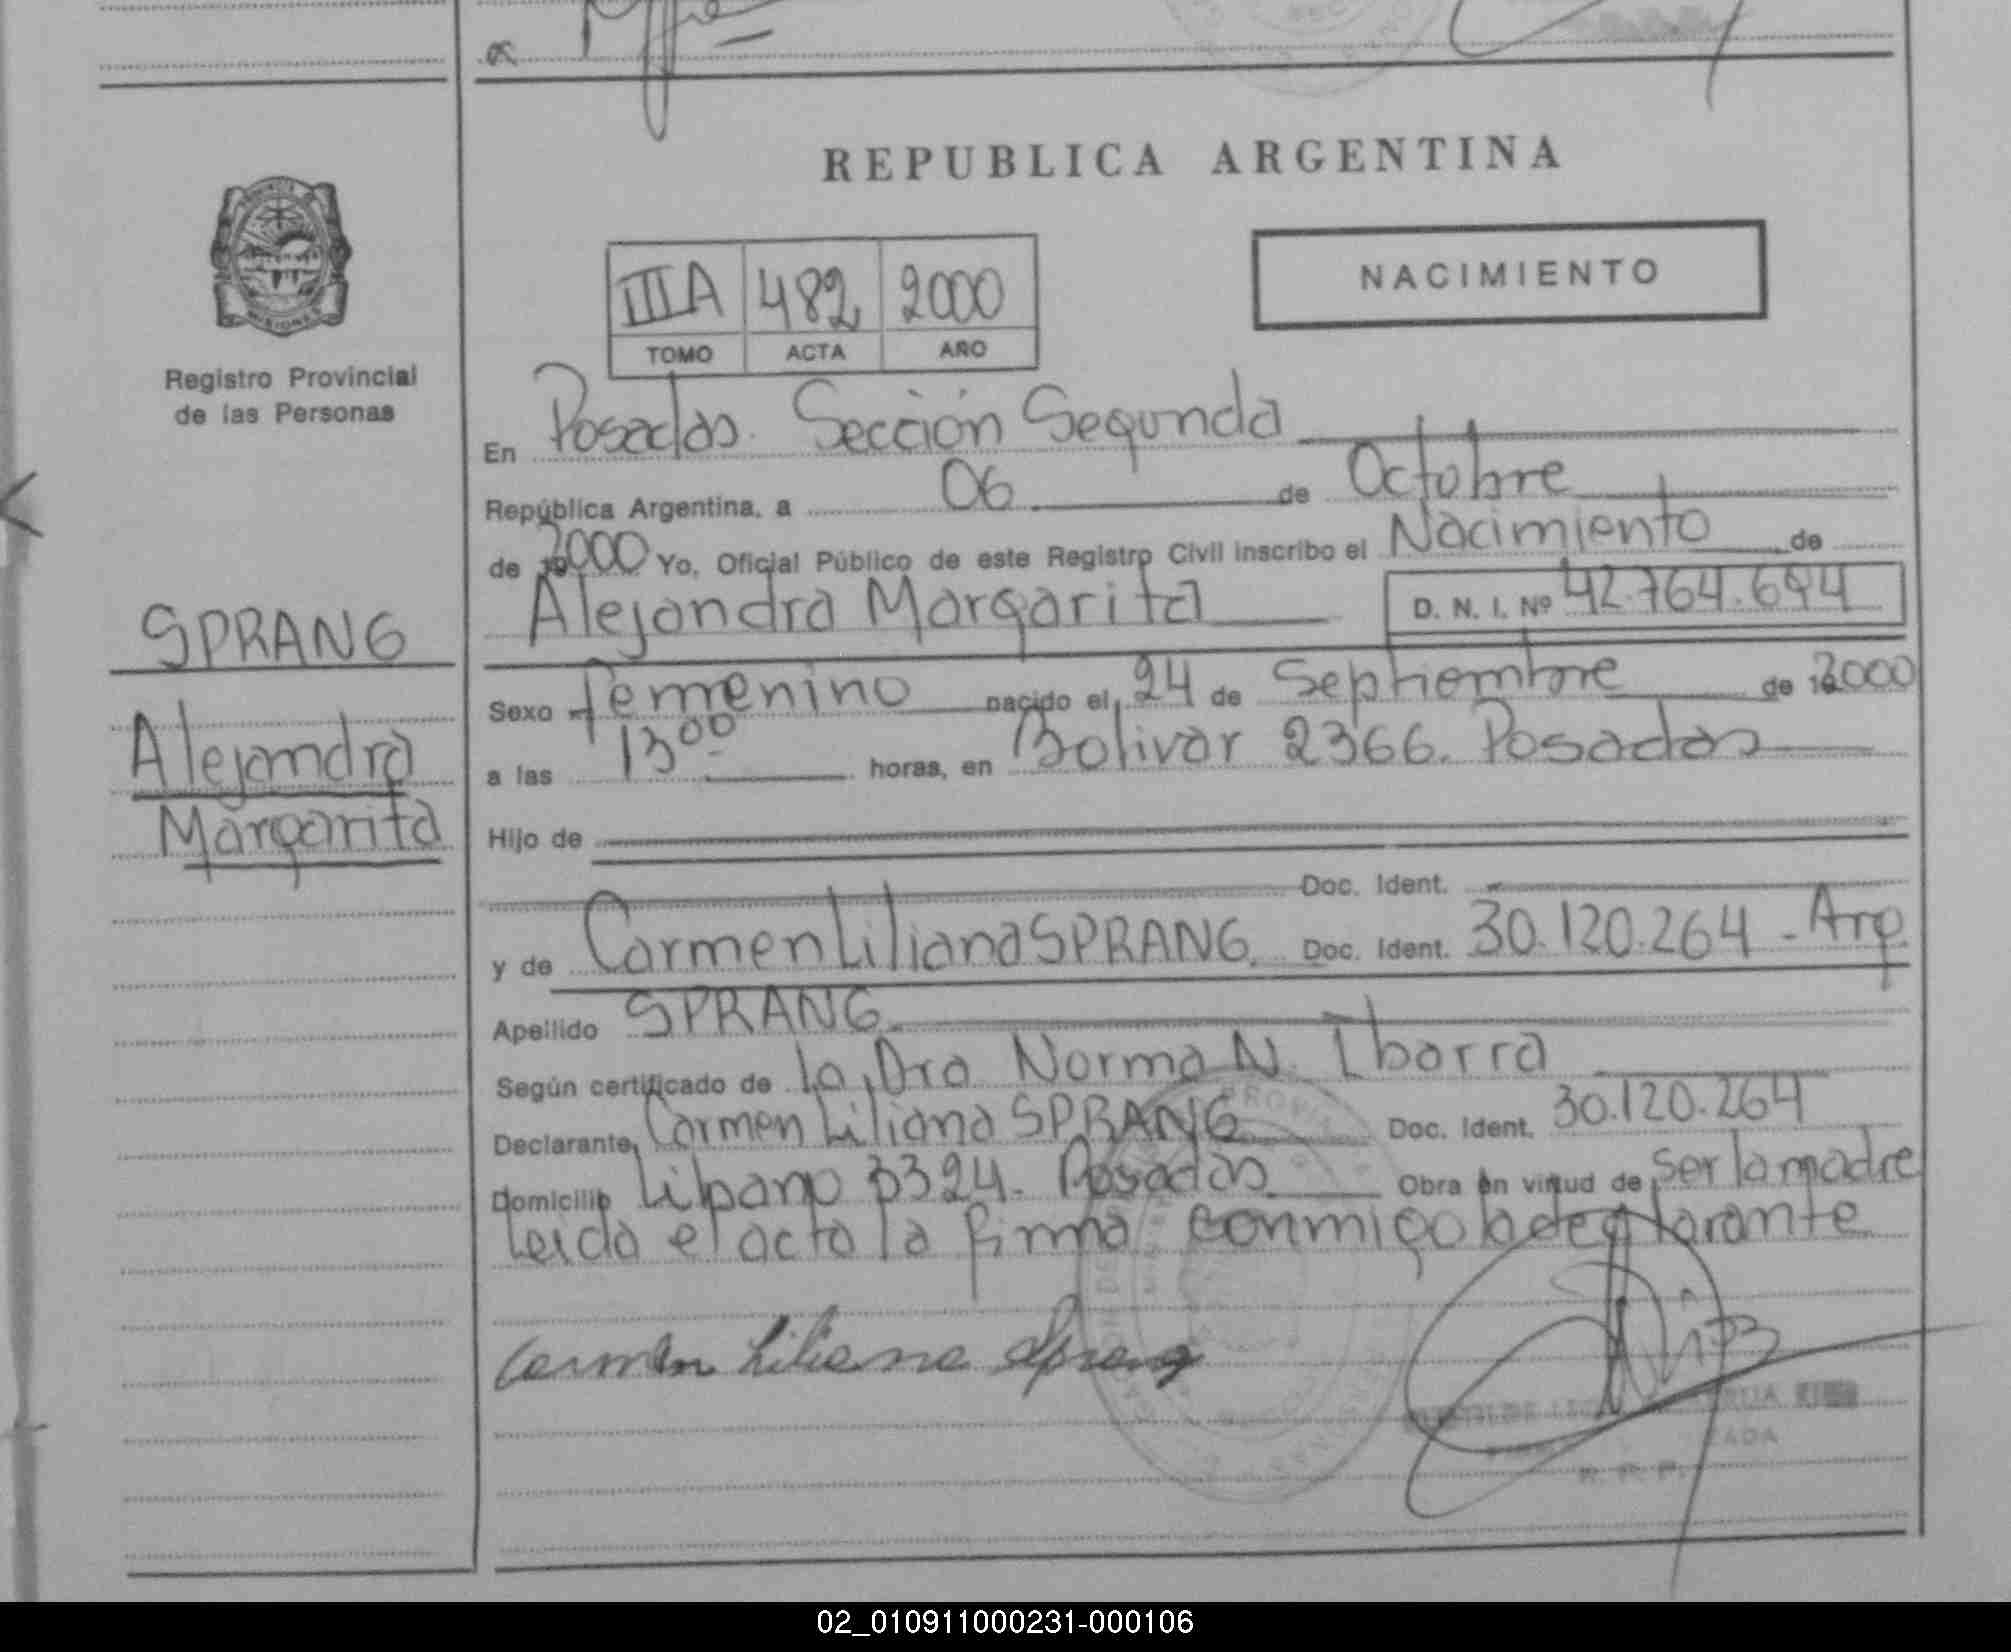 REPUBLICA ARGENTINA
NACIMIENTO
IIIA 482 2000
TOMO ACTA AÑO
Registro Provincial
de las Personas
SPRANG
Alejandra
Margarita
En Posadas. Sección Segunda
República Argentina, a 06 de Octubre
de 2000 Yo, Oficial Público de este Registro Civil inscribo el Nacimiento de
Alejandra Margarita D. N. I. Nº 42.764.694
Sexo femenino nacido el 24 de Septiembre de 2000
a las 13⁰⁰ horas, en Bolivar 2366. Posadas
Hijo de
Doc. Ident.
y de Carmen Liliana SPRANG. Doc. Ident. 30.120.264 - Arg.
Apellido SPRANG
Según certificado de la Dra Norma N. Ibarra
Declarante, Carmen Liliana SPRANG Doc. Ident. 30.120.264
Domicilio Libano 3324. Posadas Obra en virtud de ser la madre
Leida el acta la firma conmigo la declarante
Carmen Liliana Sprang
R. P. P.
02_010911000231-000106